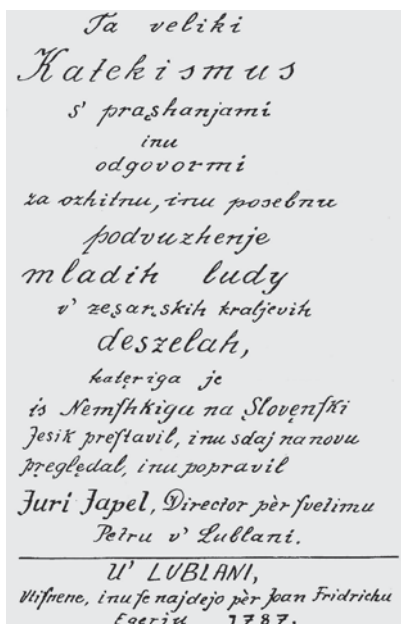 Ta veliki
Katekismus
s' prashanjami
inu
odgovormi
za ozhitnu, inu posebnu
podvuzhenje
mladih ludy
v' zesarskih kraljevih
deszelah,
kateriga je
is Nemſhkigu na Slovenſki
Jesik preſtavil, inu sdaj na novu
pregledal, inu popravil
Juri Japel, Director pèr ſvetimu
Petru v' Lublani.
U' LUBLANI,
Vtiſnene, inu ſe najdejo pèr Joan Fridrichu
Egerju 1787.